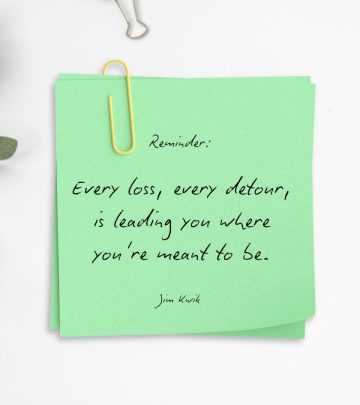 Reminder:
Every loss, every detour,
is leading you where
you're meant to be.
Jim Kwik